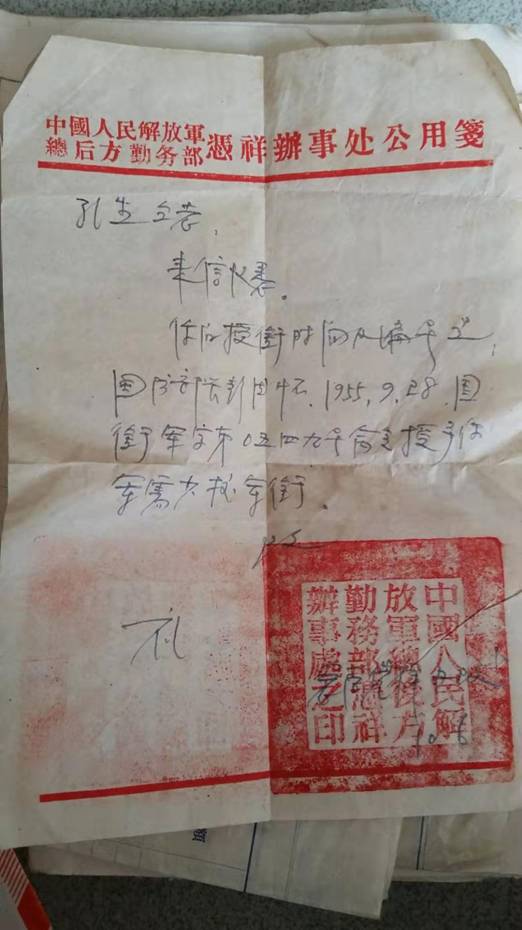 中國人民解放軍
總后方勤务部憑祥辦事处公用箋
来信收悉。
你的授衔时间及编号是:
国防部长彭德怀.1955.9.28.国
衔军字第0五四九号命令授予你
军需少校军衔。
此
礼
中國人民解
放軍總後方
勤務部憑祥
辦事處之印
10.6